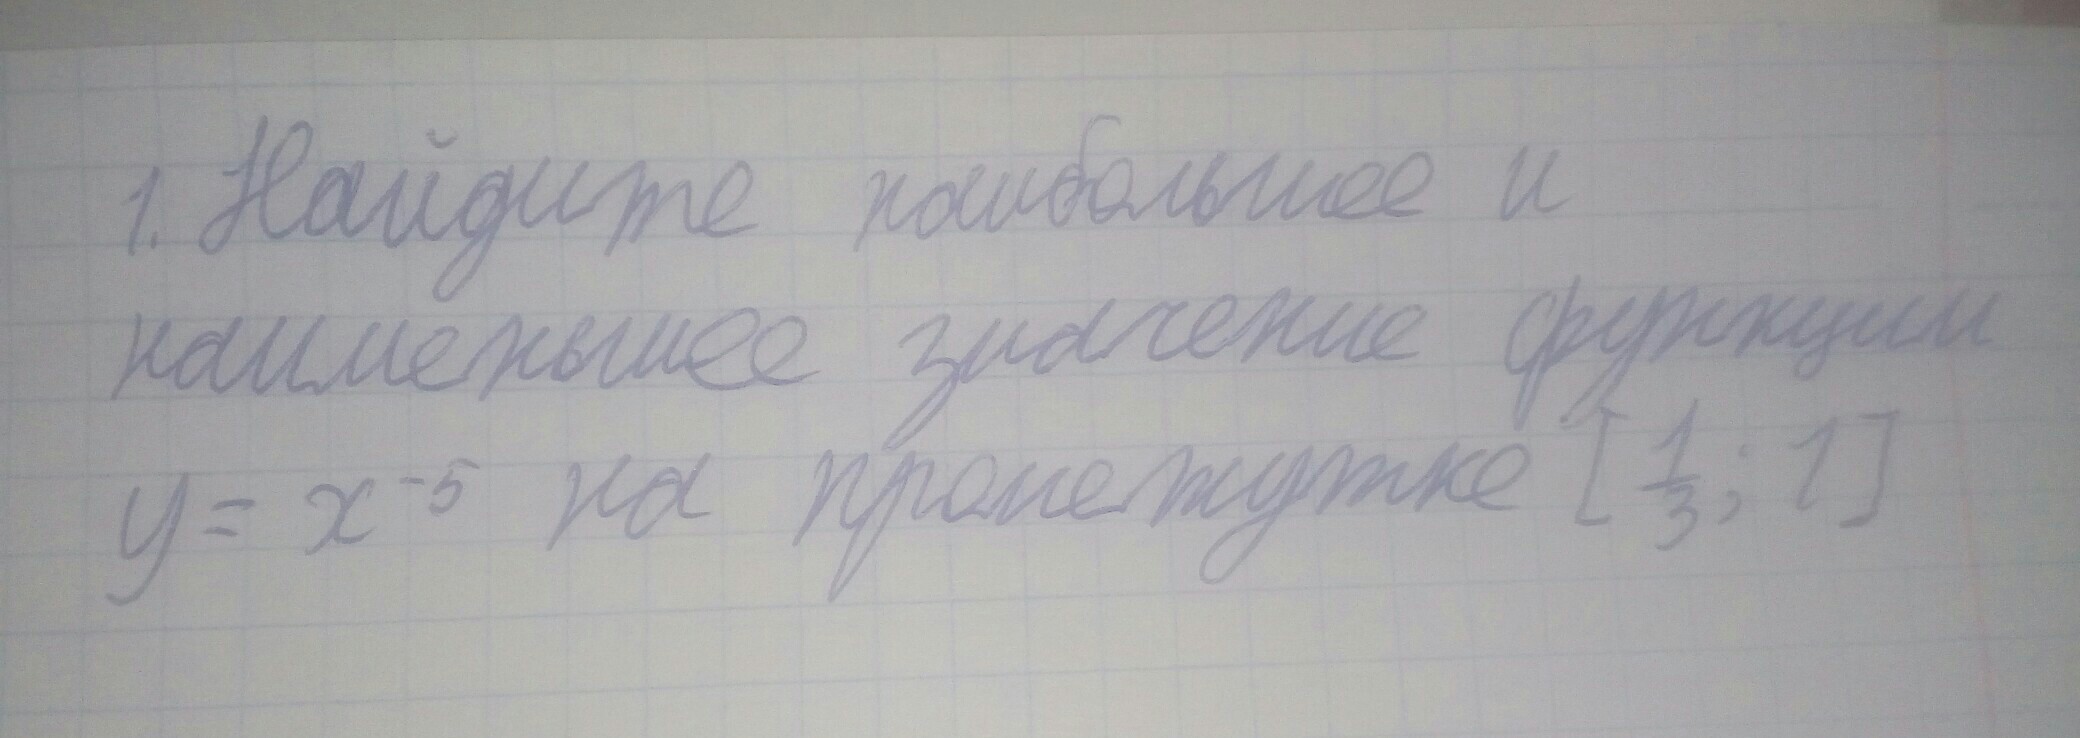 1. Найдите наибольшее и
наименьшее значение функции
y = x⁻⁵ на промежутке [1/3; 1]